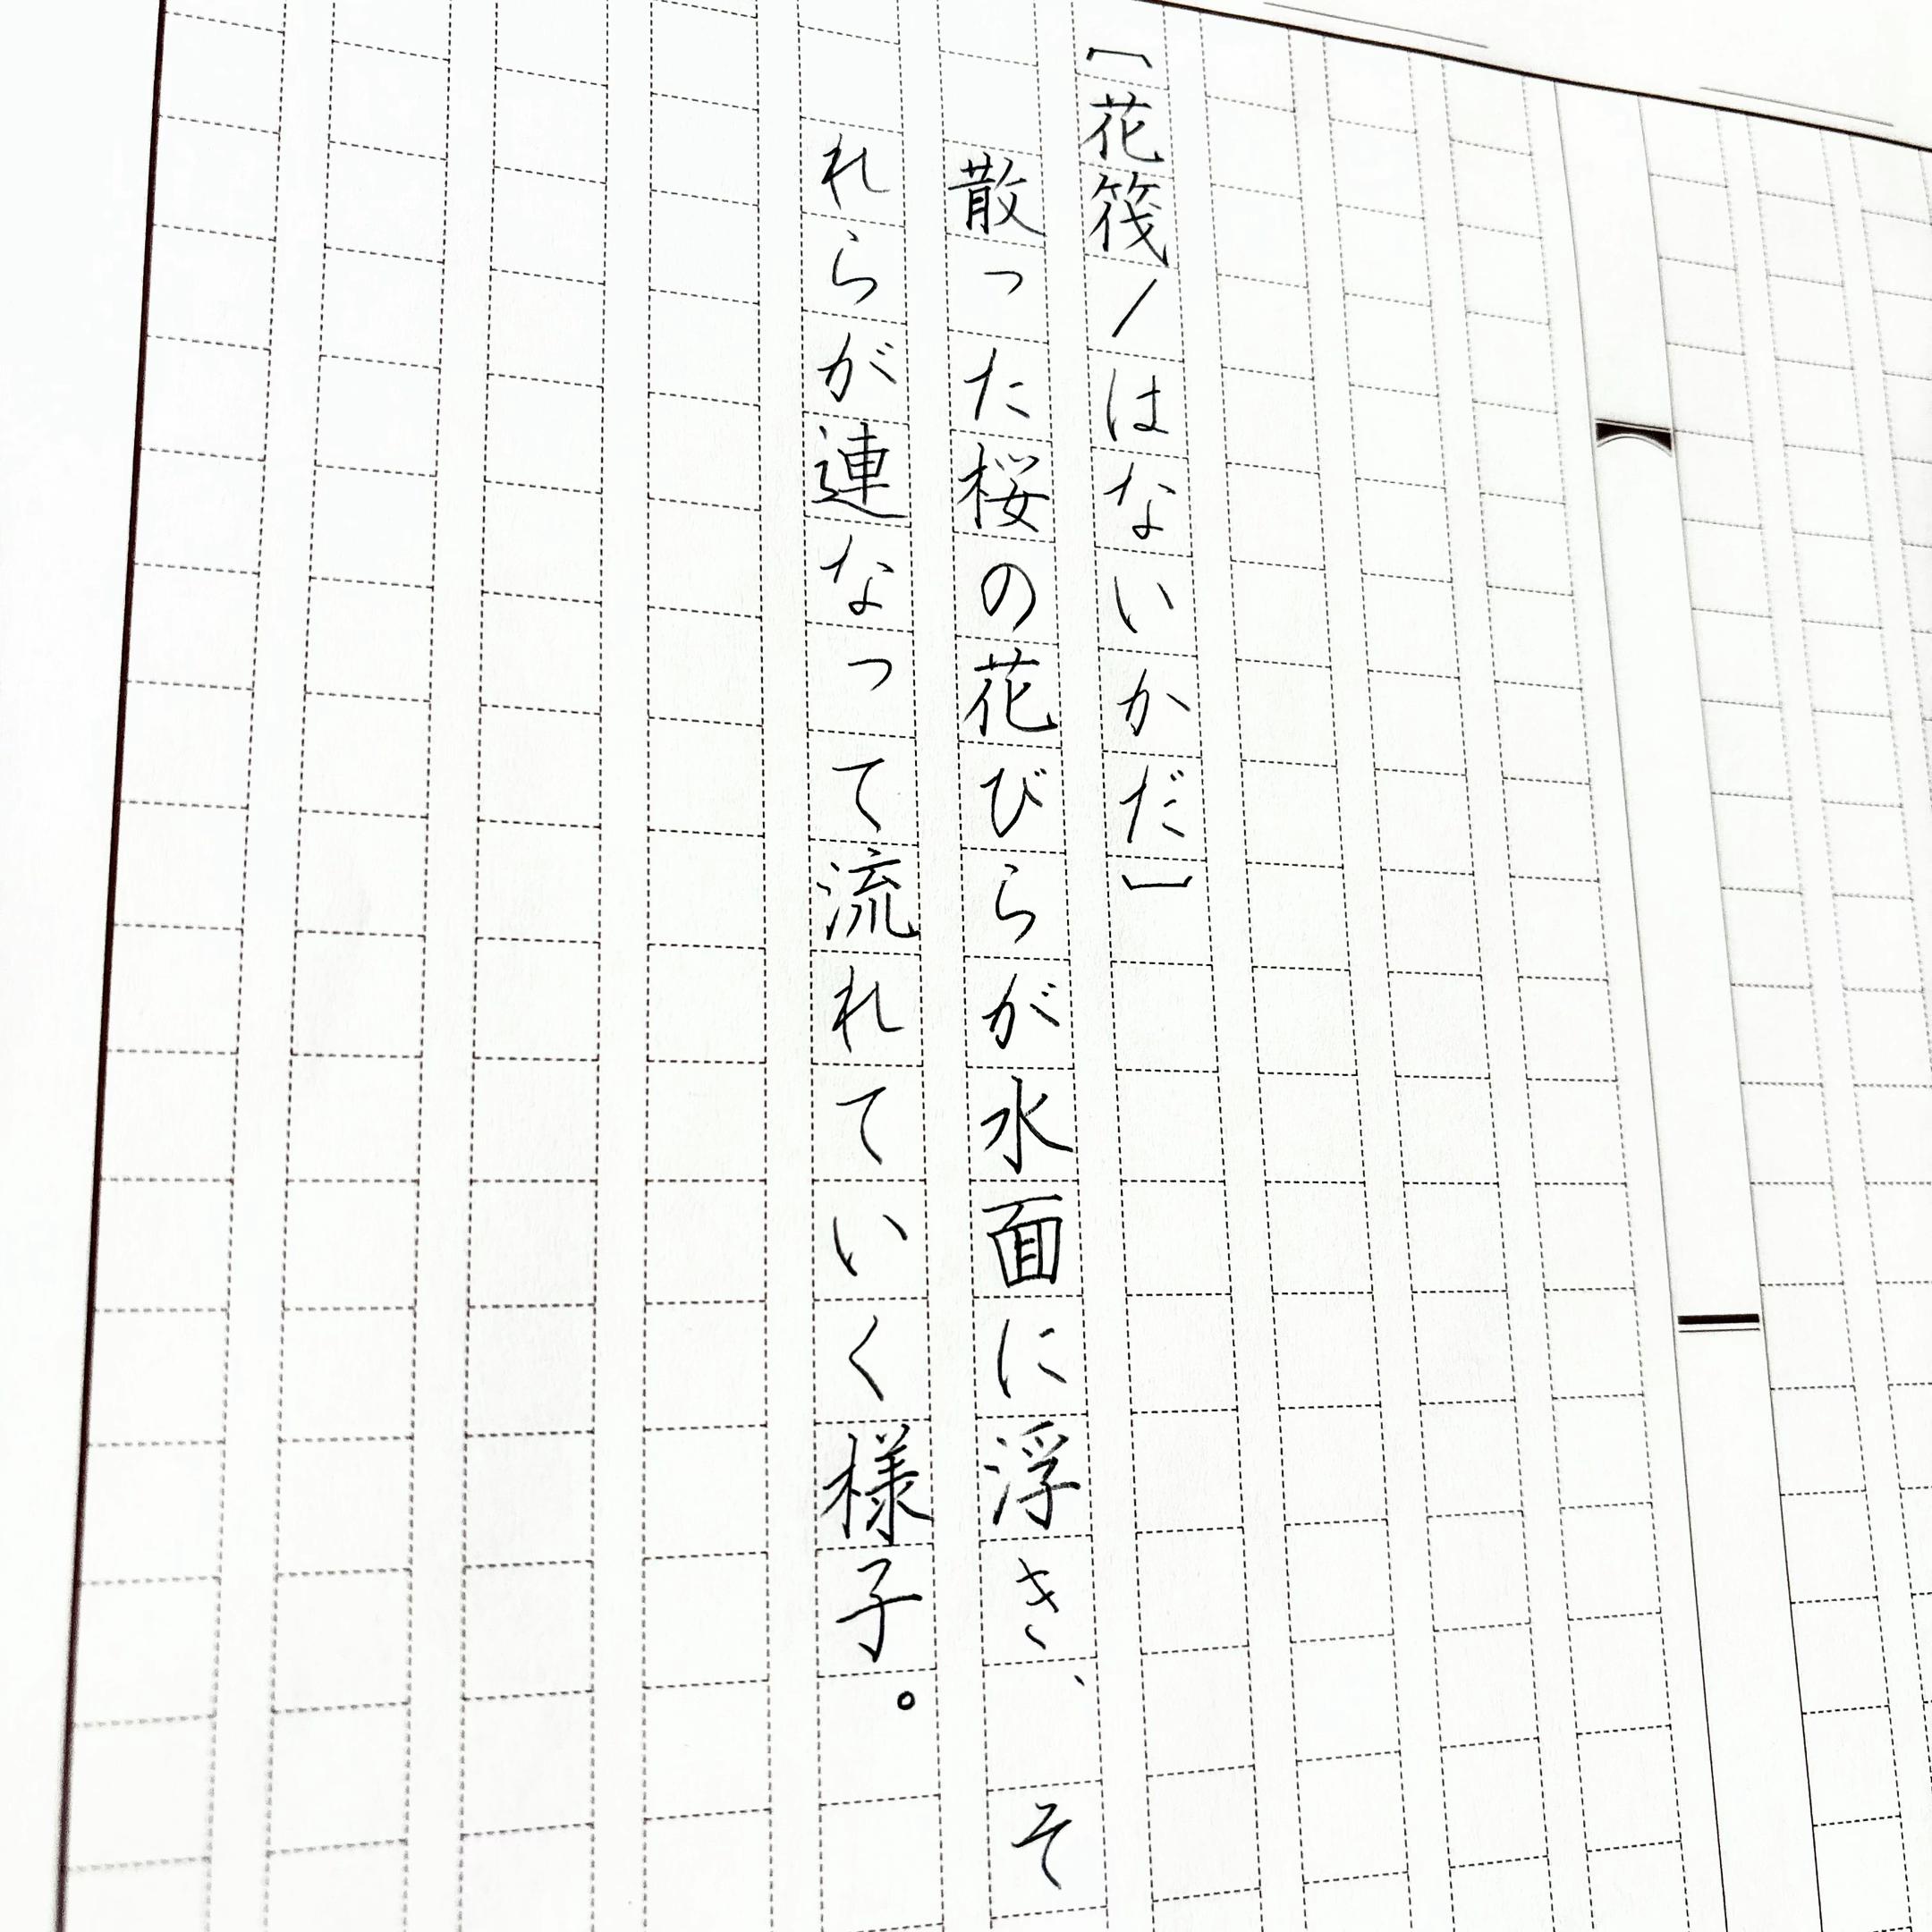 ［花筏／はないかだ］
散った桜の花びらが水面に浮き、そ
れらが連なって流れていく様子。